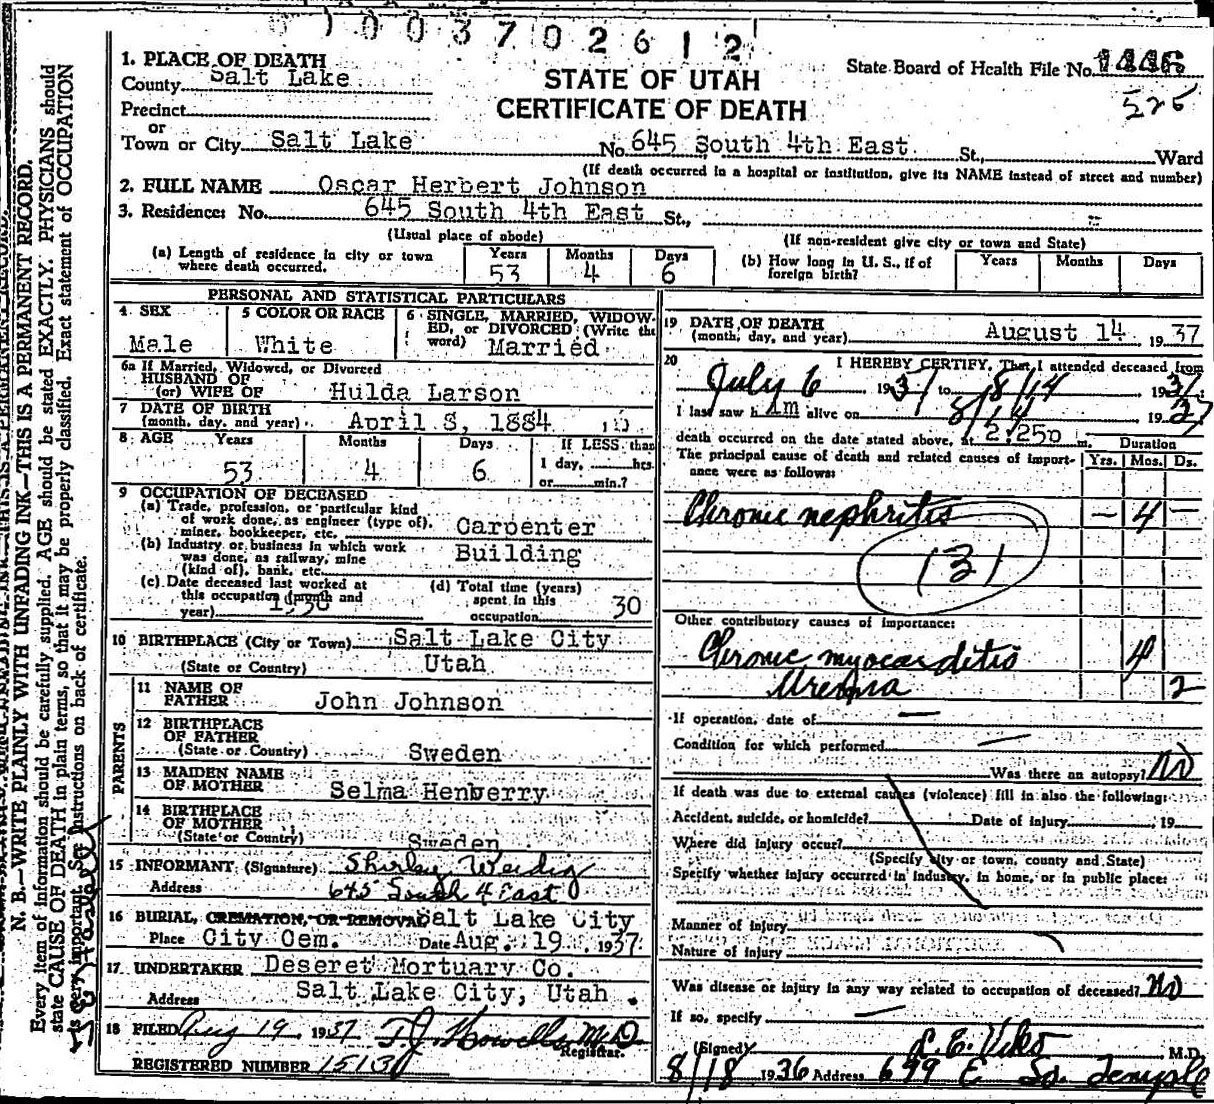 0 0 3 7 0 2 6 1 2
1. PLACE OF DEATH
County Salt Lake
Precinct
or
Town or City Salt Lake
STATE OF UTAH
CERTIFICATE OF DEATH
State Board of Health File No.
525
No. 645 South 4th East St., Ward
(If death occurred in a hospital or institution, give its NAME instead of street and number)
2. FULL NAME Oscar Herbert Johnson
3. Residence: No. 645 South 4th East St.,
(Usual place of abode)
(If non-resident give city or town and State)
(a) Length of residence in city or town where death occurred. Years 53 Months 4 Days 6
(b) How long in U. S., if of foreign birth? Years Months Days
PERSONAL AND STATISTICAL PARTICULARS
4 SEX Male
5 COLOR OR RACE White
6 SINGLE, MARRIED, WIDOWED, or DIVORCED (Write the word) Married
6a If Married, Widowed, or Divorced
HUSBAND OF
(or) WIFE OF Hulda Larson
7 DATE OF BIRTH
(month, day, and year) April 8, 1884
8 AGE Years 53 Months 4 Days 6 If LESS than 1 day, hrs. or min.?
9 OCCUPATION OF DECEASED
(a) Trade, profession, or particular kind of work done, as engineer (type of), miner, bookkeeper, etc. Carpenter
(b) Industry or business in which work was done, as railway, mine (kind of), bank, etc. Building
(c) Date deceased last worked at this occupation (month and year)
(d) Total time (years) spent in this occupation 30
10 BIRTHPLACE (City or Town) Salt Lake City
(State or Country) Utah
PARENTS
11 NAME OF FATHER John Johnson
12 BIRTHPLACE OF FATHER
(State or Country) Sweden
13 MAIDEN NAME OF MOTHER Selma Henberry
14 BIRTHPLACE OF MOTHER
(State or Country) Sweden
15 INFORMANT (Signature) Shirley
Address 645 South 4 East
16 BURIAL, CREMATION, OR REMOVAL Salt Lake City
Place City Cem. Date Aug. 19 1937
17. UNDERTAKER Deseret Mortuary Co.
Address Salt Lake City, Utah.
18 FILED Aug 19 1937 T.J. Howells M.D.
Registrar.
REGISTERED NUMBER
19 DATE OF DEATH
(month, day, and year) August 14 1937
20 I HEREBY CERTIFY, That I attended deceased from
July 6 1937 to 8/14 1937
I last saw him alive on 8/14 1937
death occurred on the date stated above, at 2:25p m.
Duration
The principal cause of death and related causes of importance were as follows:
Yrs. Mos. Ds.
Chronic nephritis — 4 —
131
Other contributory causes of importance:
Chronic myocarditis 4
Uremia 2
If operation, date of —
Condition for which performed —
Was there an autopsy? No
If death was due to external causes (violence) fill in also the following:
Accident, suicide, or homicide? Date of injury 19
Where did injury occur?
(Specify city or town, county and State)
Specify whether injury occurred in industry, in home, or in public place:
Manner of injury
Nature of injury
Was disease or injury in any way related to occupation of deceased? No
If so, specify —
(Signed) L. E. Viko M.D.
8/18 1936 Address 699 E So. Temple
N. B.—WRITE PLAINLY WITH UNFADING INK—THIS IS A PERMANENT RECORD.
Every item of information should be carefully supplied. AGE should be stated EXACTLY. PHYSICIANS should
state CAUSE OF DEATH in plain terms, so that it may be properly classified. Exact statement of OCCUPATION
is very important. See instructions on back of certificate.